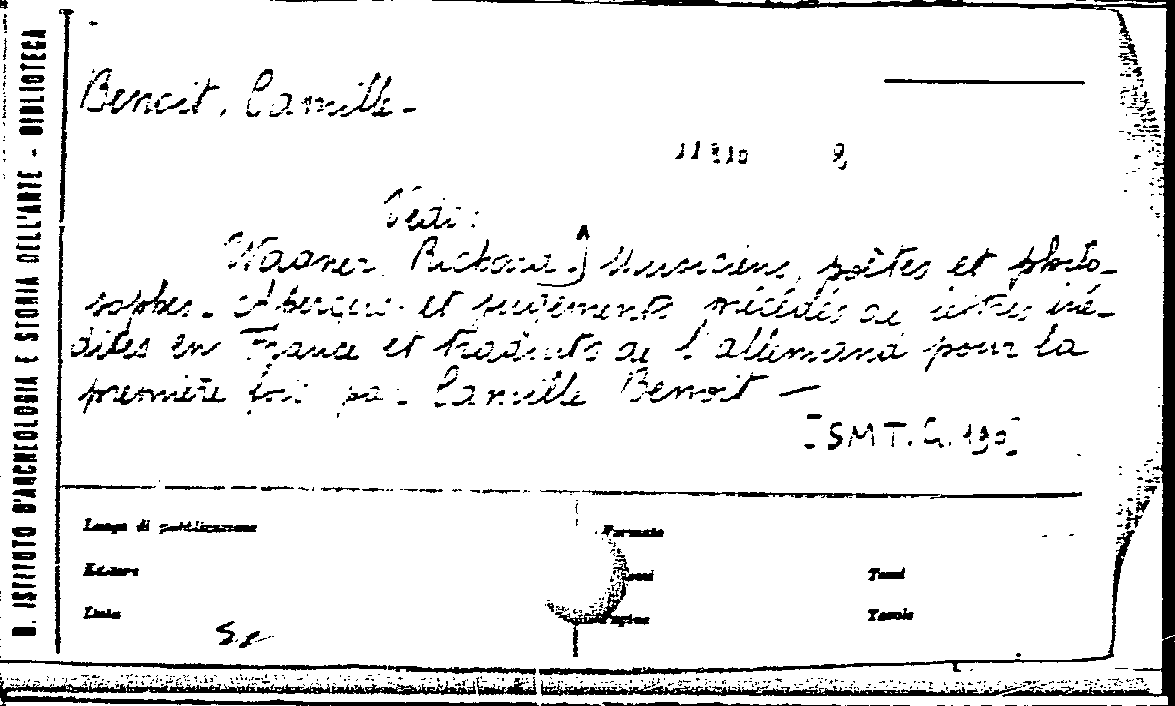 R. ISTITUTO D'ARCHEOLOGIA E STORIA DELL'ARTE - BIBLIOTECA
Benoit, Camille -
Vedi:
Wagner, Richard. Musiciens, poètes et philo-
sophes. Aperçus et jugements précédés de lettres iné-
dites en France et traduits de l'allemand pour la
première fois par Camille Benoit -
[SMT. G.
Luogo di pubblicazione
Formato
Editore
Tomi
Data
Pagine
Tavole